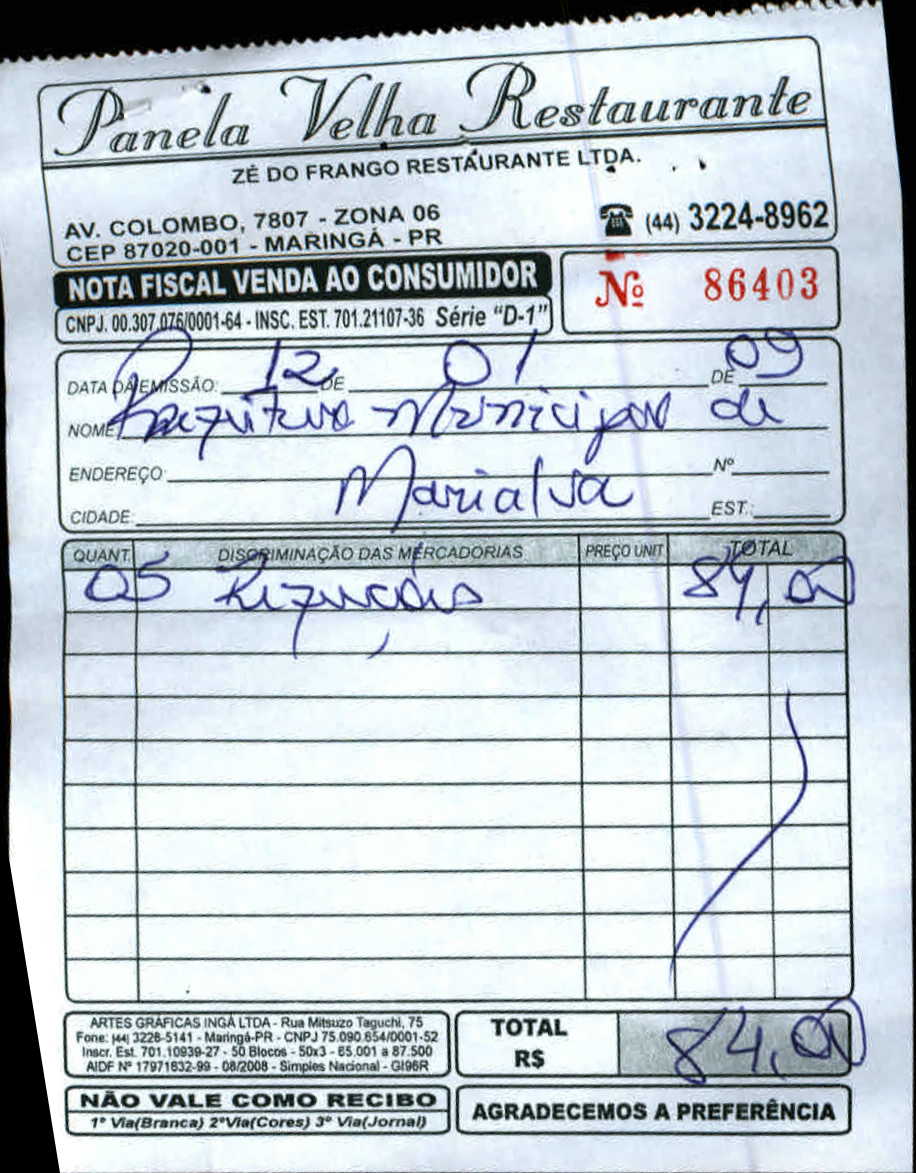 Panela Velha Restaurante
ZÉ DO FRANGO RESTAURANTE LTDA.
AV. COLOMBO, 7807 - ZONA 06
CEP 87020-001 - MARINGÁ - PR
(44) 3224-8962
NOTA FISCAL VENDA AO CONSUMIDOR
CNPJ. 00.307.076/0001-64 - INSC. EST. 701.21107-36 Série "D-1"
Nº 86403
DATA DA EMISSÃO: 12 DE 01 DE 09
NOME: Municipal de
ENDEREÇO: Nº
Marialva
CIDADE: EST.:
QUANT. DISCRIMINAÇÃO DAS MERCADORIAS PREÇO UNIT. TOTAL
05 Refeições 84,00
ARTES GRÁFICAS INGÁ LTDA - Rua Mitsuzo Taguchi, 75
Fone: (44) 3228-5141 - Maringá-PR - CNPJ 75.090.654/0001-52
Inscr. Est. 701.10939-27 - 50 Blocos - 50x3 - 85.001 a 87.500
AIDF Nº 17971632-99 - 08/2008 - Simples Nacional - GI96R
TOTAL
R$ 84,00
NÃO VALE COMO RECIBO
1ª Via(Branca) 2ªVia(Cores) 3ª Via(Jornal)
AGRADECEMOS A PREFERÊNCIA